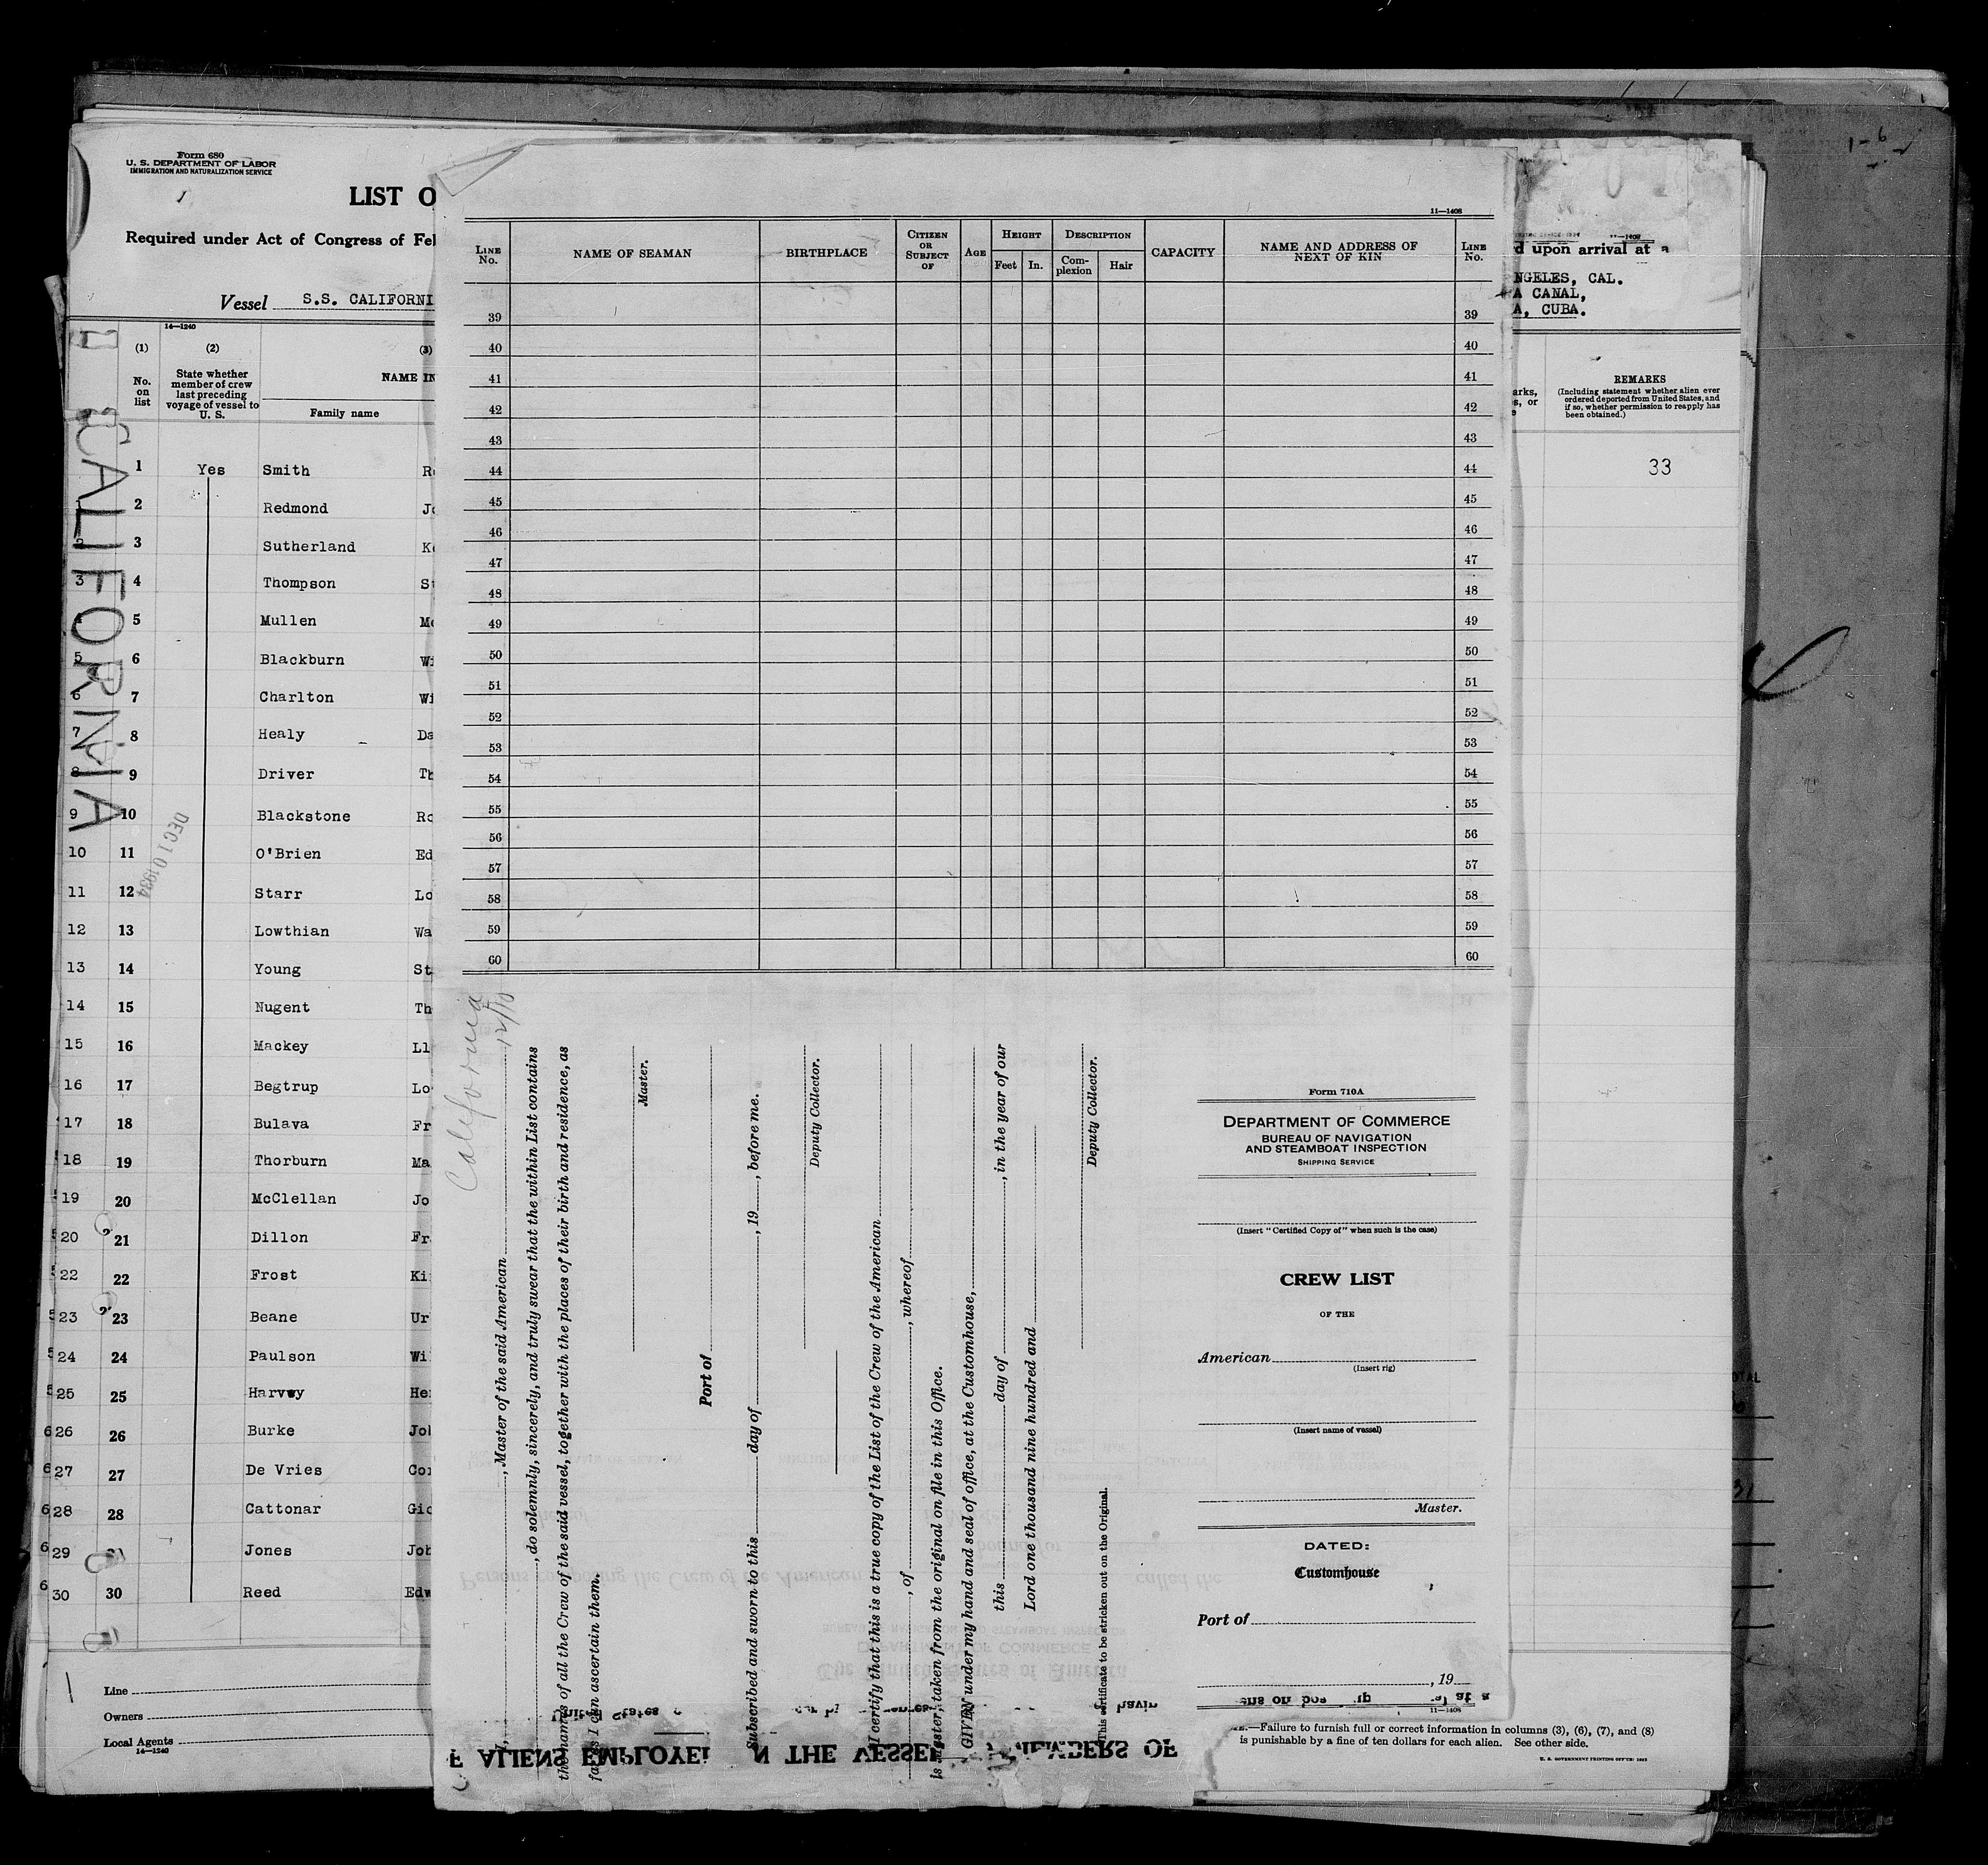 Form 680
U. S. DEPARTMENT OF LABOR
IMMIGRATION AND NATURALIZATION SERVICE
LIST O
Required under Act of Congress of Fe
Vessel S.S. CALIFORNI
14—1240
(1) (2) (3)
No. on list
State whether member of crew last preceding voyage of vessel to U. S.
NAME IN
Family name
CALIFORNIA
DEC 10 1934
1 Yes Smith R
2 Redmond Jo
3 Sutherland Ke
3 4 Thompson St
5 Mullen Mo
5 6 Blackburn Wi
6 7 Charlton Wi
7 8 Healy Da
8 9 Driver Th
9 10 Blackstone Ro
10 11 O'Brien Ed
11 12 Starr Lo
12 13 Lowthian Wa
13 14 Young St
14 15 Nugent Th
15 16 Mackey Ll
16 17 Begtrup Lo
17 18 Bulava Fr
18 19 Thorburn Ma
19 20 McClellan Jo
20 21 Dillon Fr
22 22 Frost Ki
23 23 Beane Ur
24 24 Paulson Wi
25 25 Harvey He
26 26 Burke Jo
27 27 De Vries Co
28 28 Cattonar Gio
29 Jones Joh
30 30 Reed Edw
Line
Owners
Local Agents
14—1240
11—1408
LINE No. NAME OF SEAMAN BIRTHPLACE CITIZEN OR SUBJECT OF AGE HEIGHT Feet In. DESCRIPTION Complexion Hair CAPACITY NAME AND ADDRESS OF NEXT OF KIN LINE No.
39 39
40 40
41 41
42 42
43 43
44 44
45 45
46 46
47 47
48 48
49 49
50 50
51 51
52 52
53 53
54 54
55 55
56 56
57 57
58 58
59 59
60 60
California
12/10
I, , Master of the said American
, do solemnly, sincerely, and truly swear that the within List contains
the names of all the Crew of the said vessel, together with the places of their birth and residence, as
far as I can ascertain them.
Master.
Port of
Subscribed and sworn to this day of , 19 , before me.
Deputy Collector.
I certify that this is a true copy of the List of the Crew of the American
, of , whereof
is master, taken from the original on file in this Office.
GIVEN under my hand and seal of office, at the Customhouse,
this day of , in the year of our
Lord one thousand nine hundred and
Deputy Collector.
This certificate to be stricken out on the Original.
Form 710A
DEPARTMENT OF COMMERCE
BUREAU OF NAVIGATION
AND STEAMBOAT INSPECTION
SHIPPING SERVICE
(Insert "Certified Copy of" when such is the case)
CREW LIST
OF THE
American
(Insert rig)
(Insert name of vessel)
Master.
DATED:
Customhouse
,
Port of
, 19
11—1408
F ALIENS EMPLOYE N THE VESSEL MEMBERS OF
d upon arrival at a
NGELES, CAL.
A CANAL,
A, CUBA.
arks,
s, or
e
REMARKS
(Including statement whether alien ever ordered deported from United States, and if so, whether permission to reapply has been obtained.)
33
—Failure to furnish full or correct information in columns (3), (6), (7), and (8)
is punishable by a fine of ten dollars for each alien. See other side.
U. S. GOVERNMENT PRINTING OFFICE: